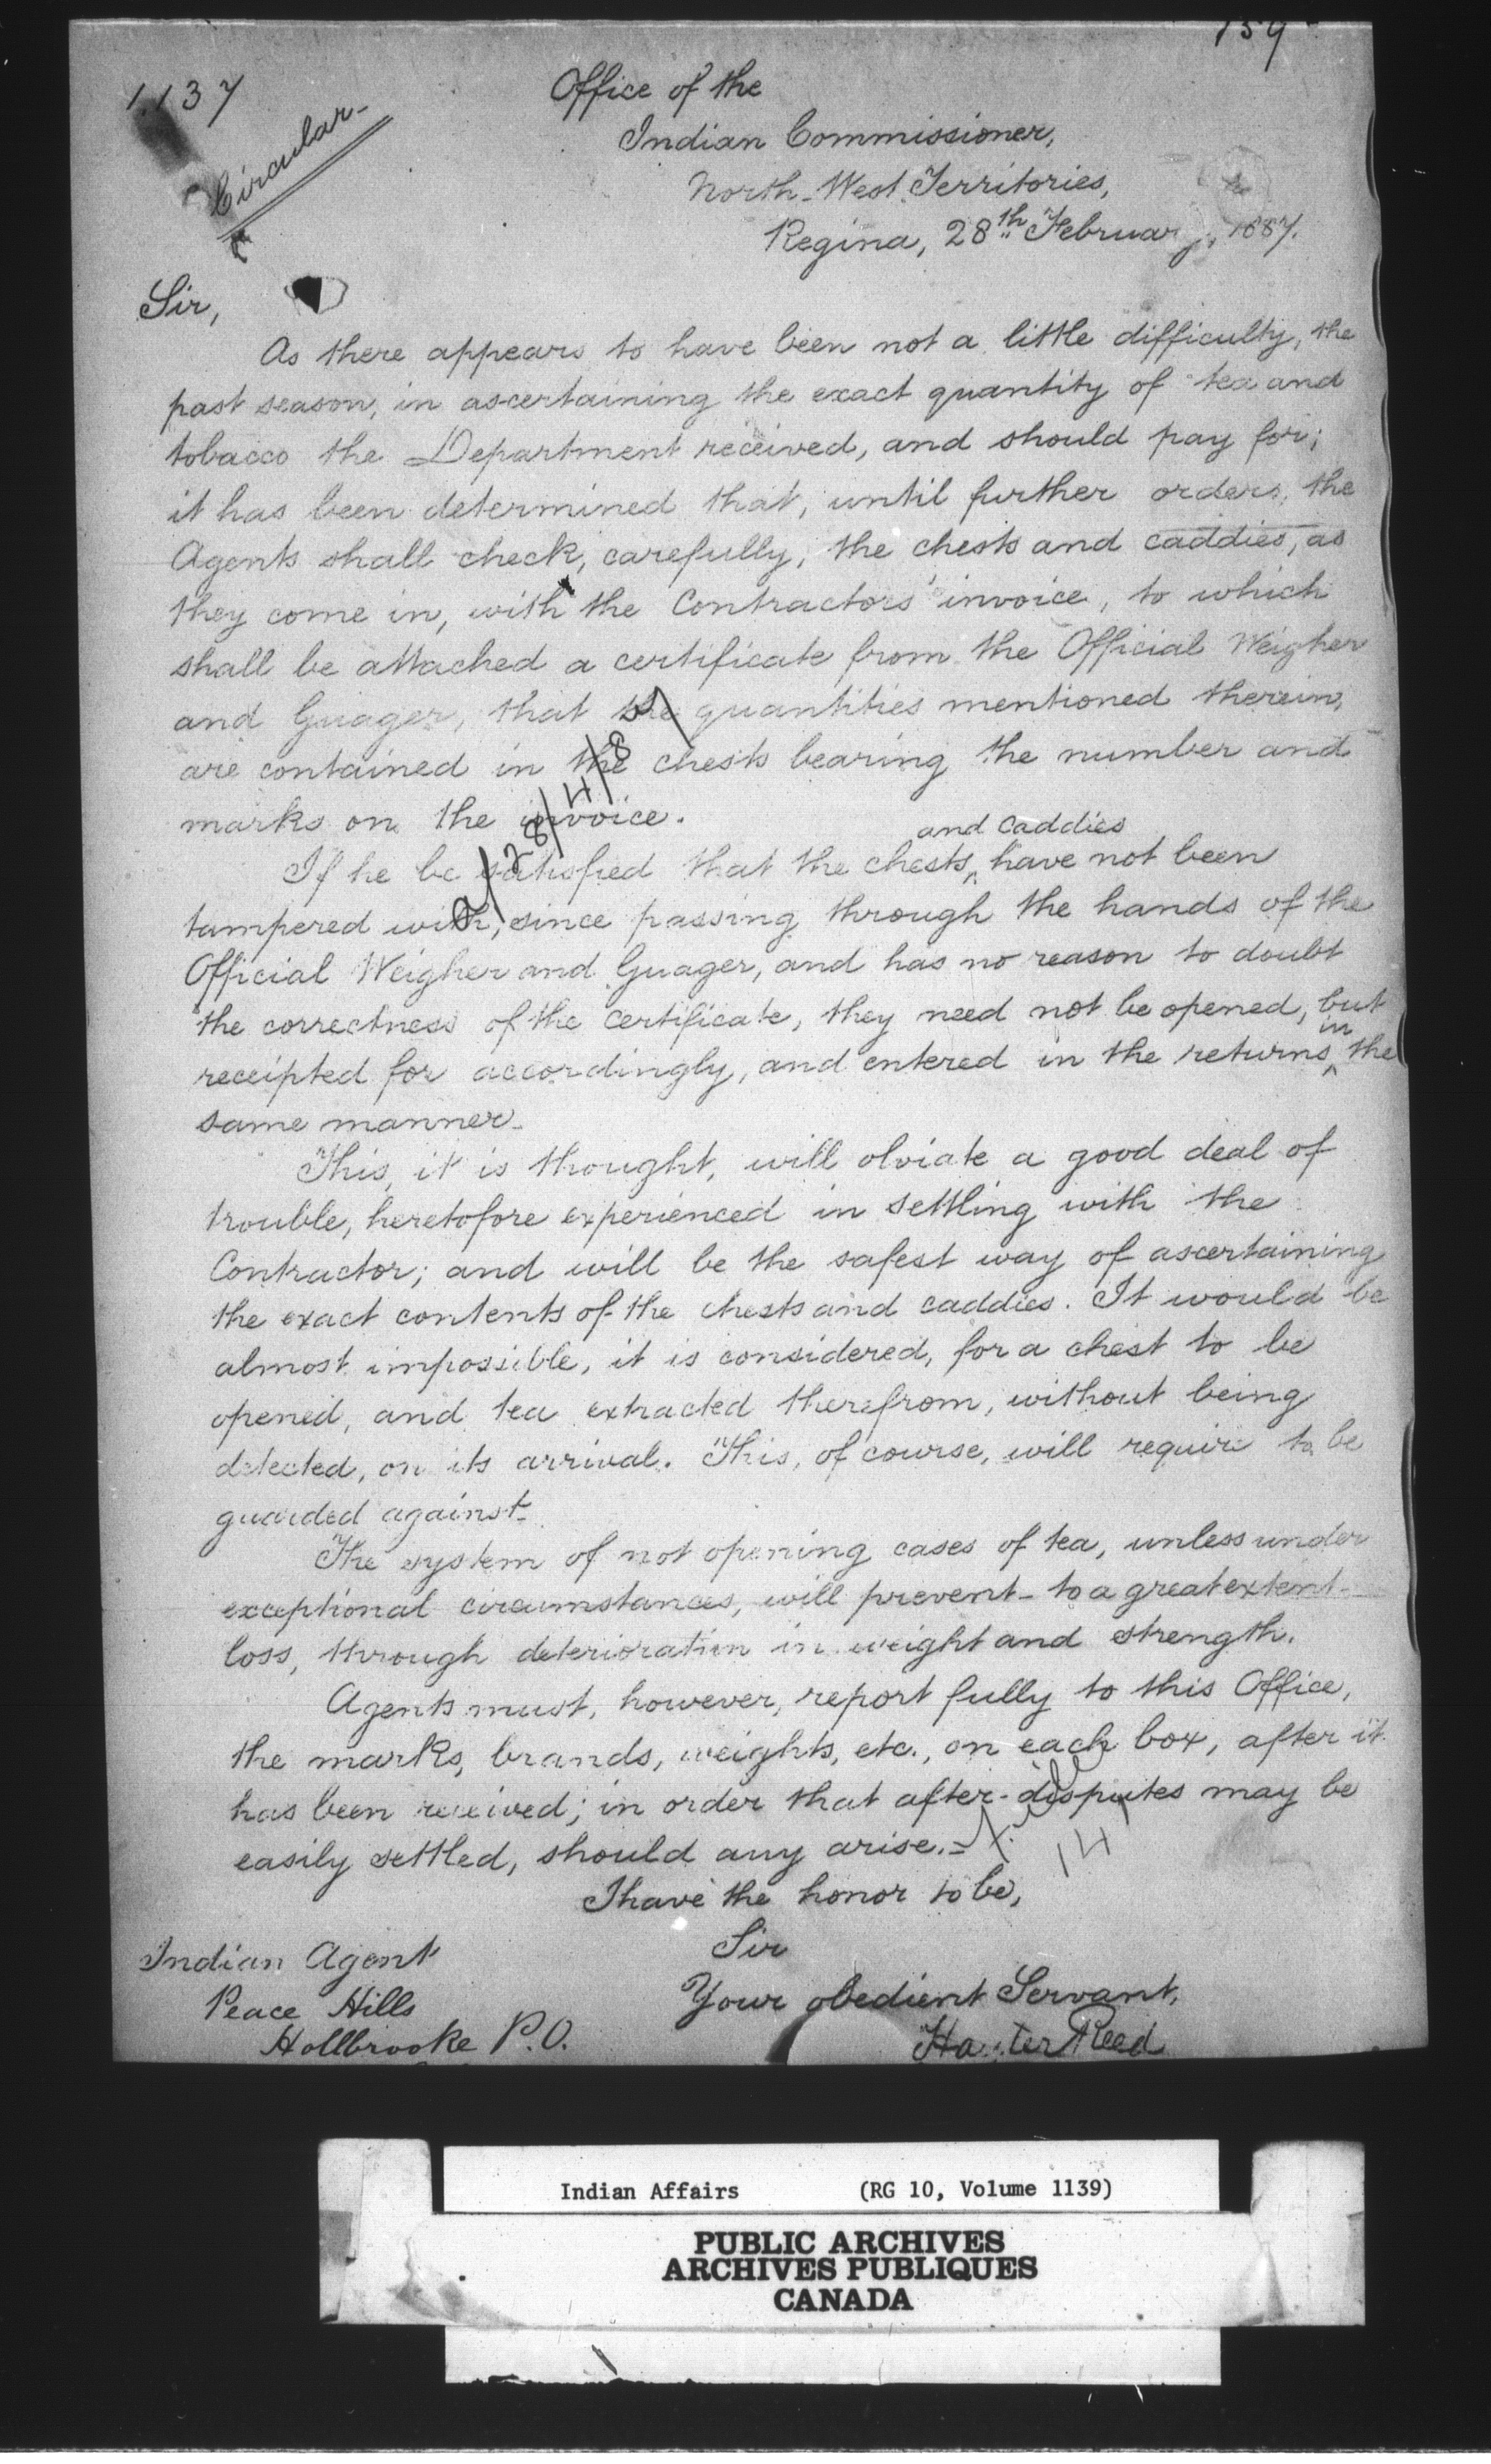 159
1137
Circular.
Office of the
Indian Commissioner,
North-West Territories,
Regina, 28th February, 1887.
Sir,
As there appears to have been not a little difficulty, the
past season, in ascertaining the exact quantity of tea and
tobacco the Department received, and should pay for;
it has been determined that, until further orders, the
Agents shall check, carefully, the chests and caddies, as
they come in, with the Contractors' invoice, to which
shall be attached a certificate from the Official Weigher
and Guager, that the quantities mentioned therein,
are contained in the chests bearing the number and
marks on the invoice.
If he be satisfied that the chests and caddies have not been
tampered with, since passing through the hands of the
Official Weigher and Guager, and has no reason to doubt
the correctness of the certificate, they need not be opened, but
receipted for accordingly, and entered in the returns in the
same manner.
This, it is thought, will obviate a good deal of
trouble, heretofore experienced in settling with the
Contractor; and will be the safest way of ascertaining
the exact contents of the chests and caddies. It would be
almost impossible, it is considered, for a chest to be
opened, and tea extracted therefrom, without being
detected, on its arrival. This, of course, will require to be
guarded against.
The system of not opening cases of tea, unless under
exceptional circumstances, will prevent - to a great extent -
loss, through deterioration in weight and strength.
Agents must, however, report fully to this Office,
the marks, brands, weights, etc., on each box, after it
has been received; in order that after-disputes may be
easily settled, should any arise.-
I have the honor to be,
Sir
Your obedient Servant,
Hayter Reed
Indian Agent
Peace Hills
Hollbrooke P.O.
Indian Affairs (RG 10, Volume 1139)
PUBLIC ARCHIVES
ARCHIVES PUBLIQUES
CANADA